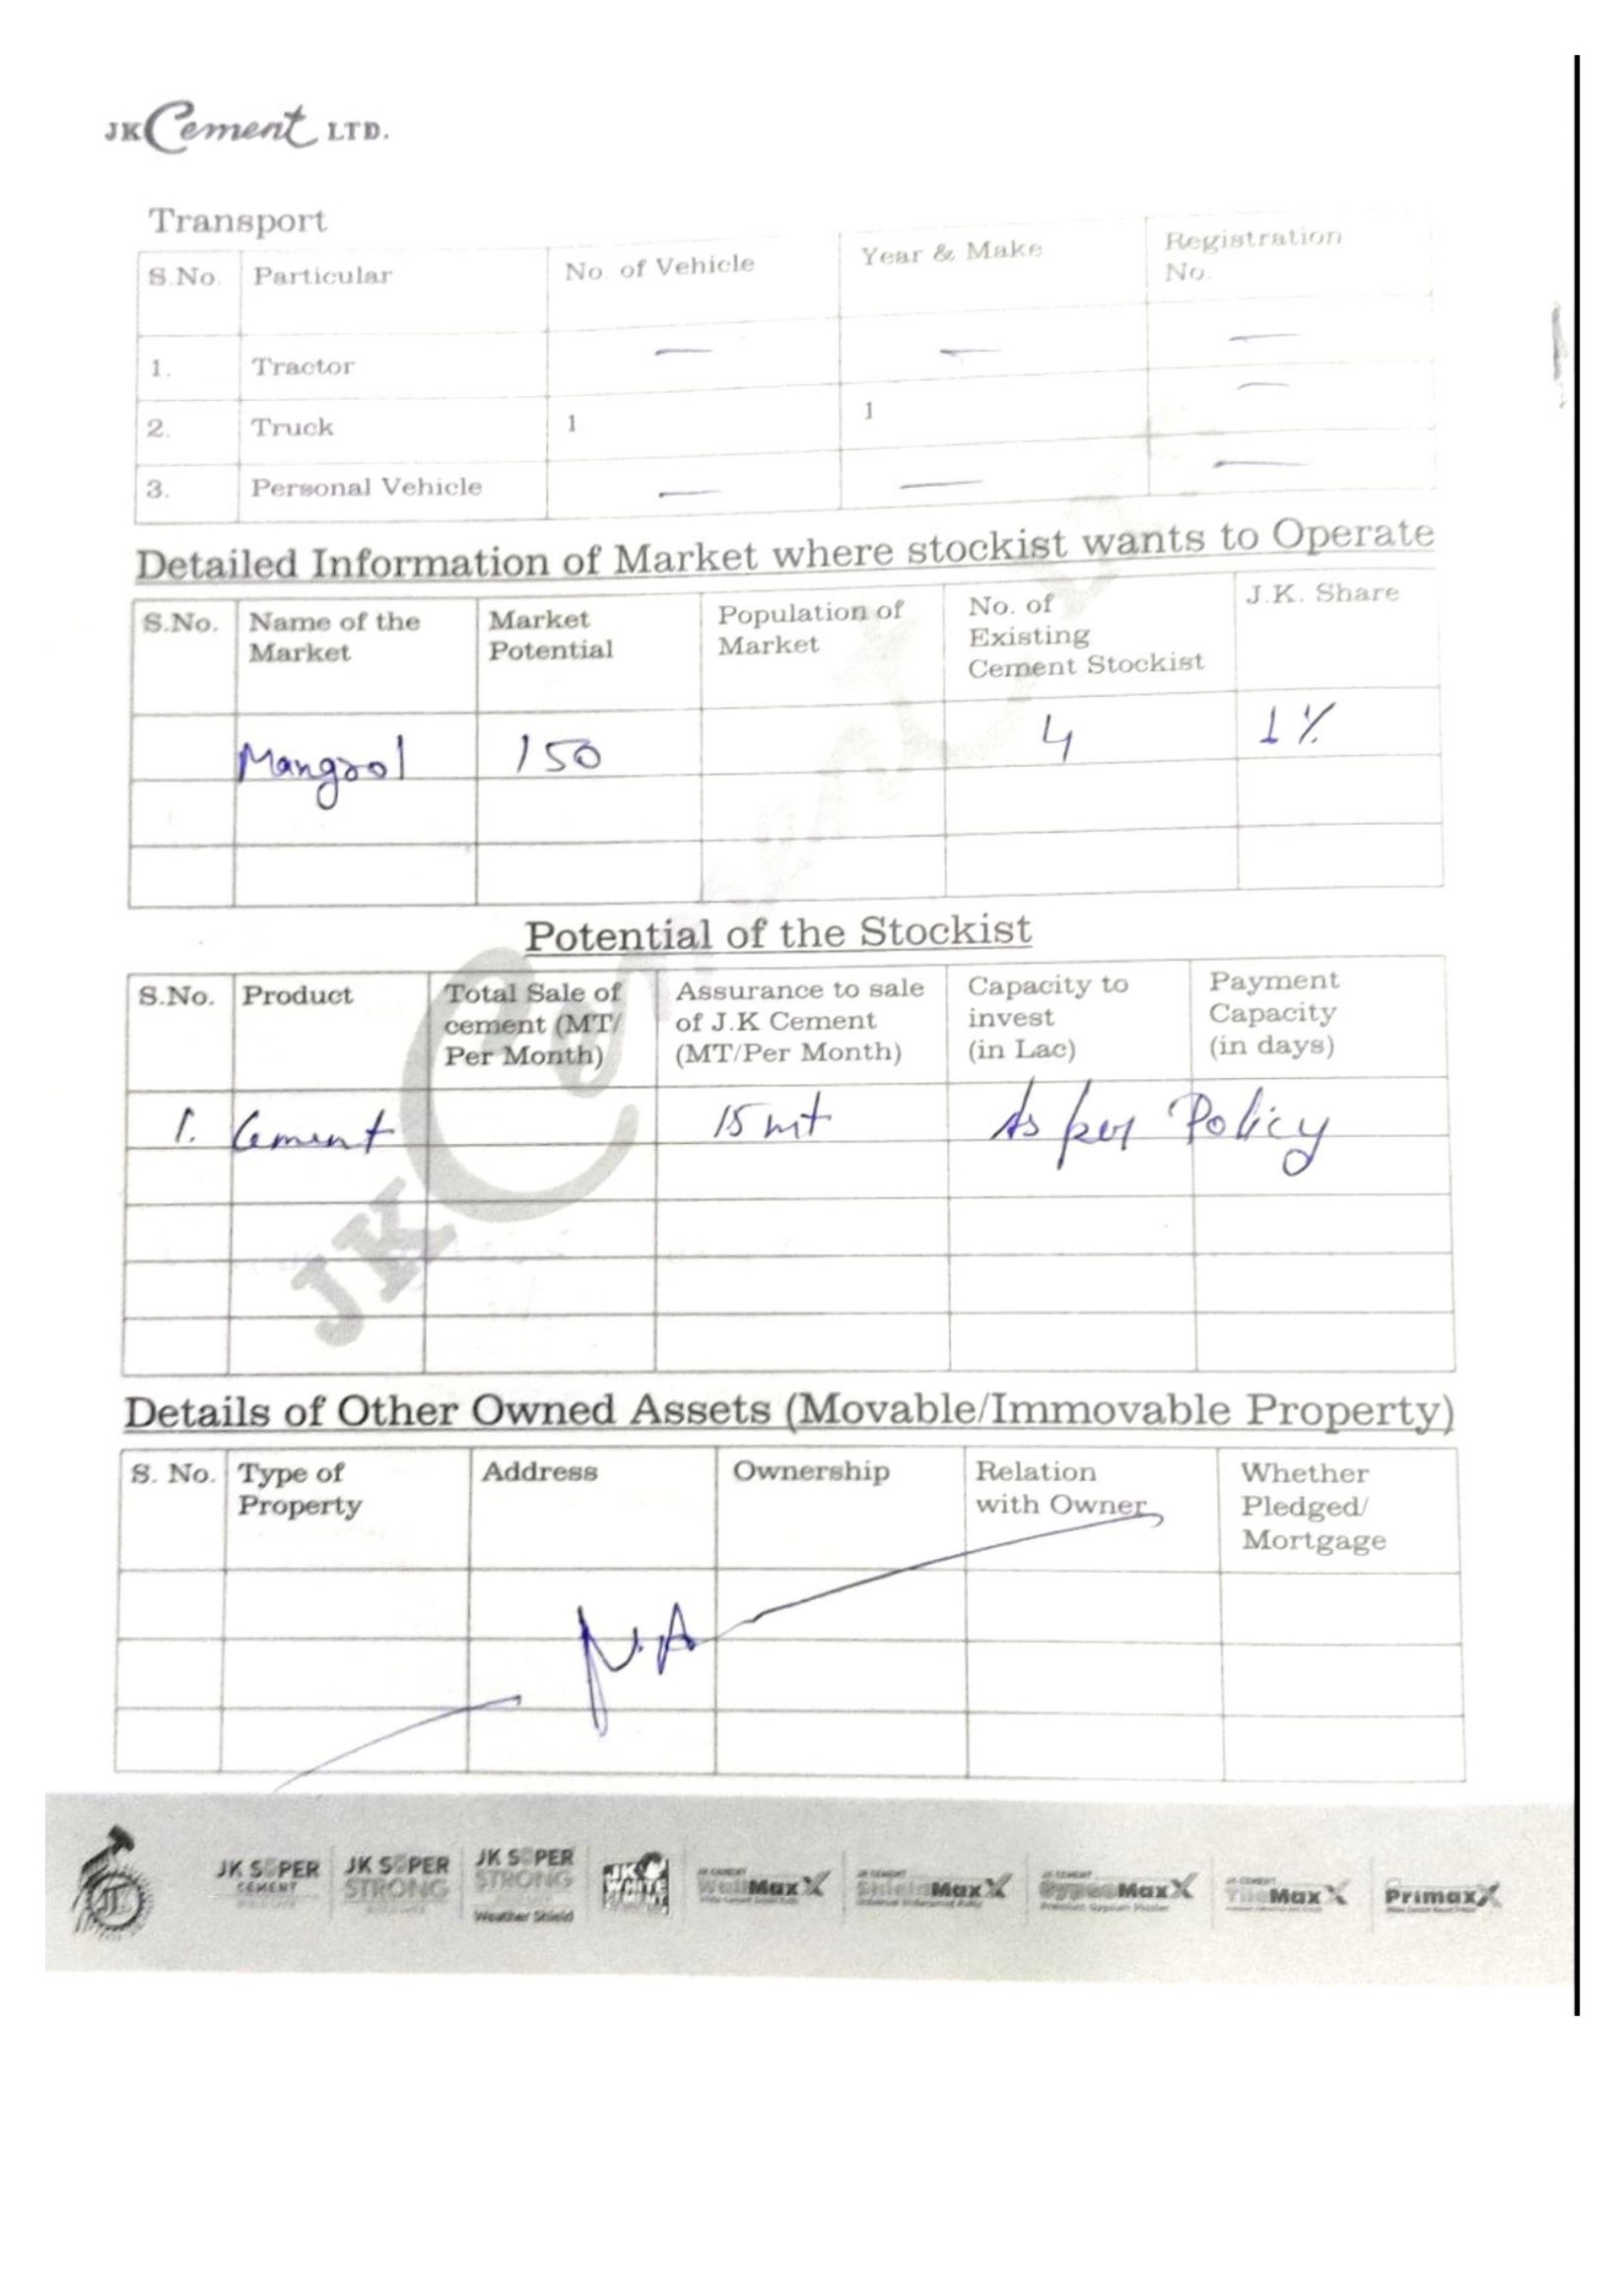 JK Cement LTD.
Transport
S.No. Particular No. of Vehicle Year & Make Registration No.
1. Tractor — — —
2. Truck 1 1 —
3. Personal Vehicle — — —
Detailed Information of Market where stockist wants to Operate
S.No. Name of the Market Market Potential Population of Market No. of Existing Cement Stockist J.K. Share
Mangrol 150 4 1%
Potential of the Stockist
S.No. Product Total Sale of cement (MT/ Per Month) Assurance to sale of J.K Cement (MT/Per Month) Capacity to invest (in Lac) Payment Capacity (in days)
1. Cement 15 mt As per Policy
Details of Other Owned Assets (Movable/Immovable Property)
S. No. Type of Property Address Ownership Relation with Owner Whether Pledged/ Mortgage
N.A
JK Cement
JK SUPER CEMENT JK SUPER STRONG JK SUPER STRONG Weather Shield JK WHITE WallMaxX ShieldMaxX GypsoMaxX TileMaxX PrimaxX